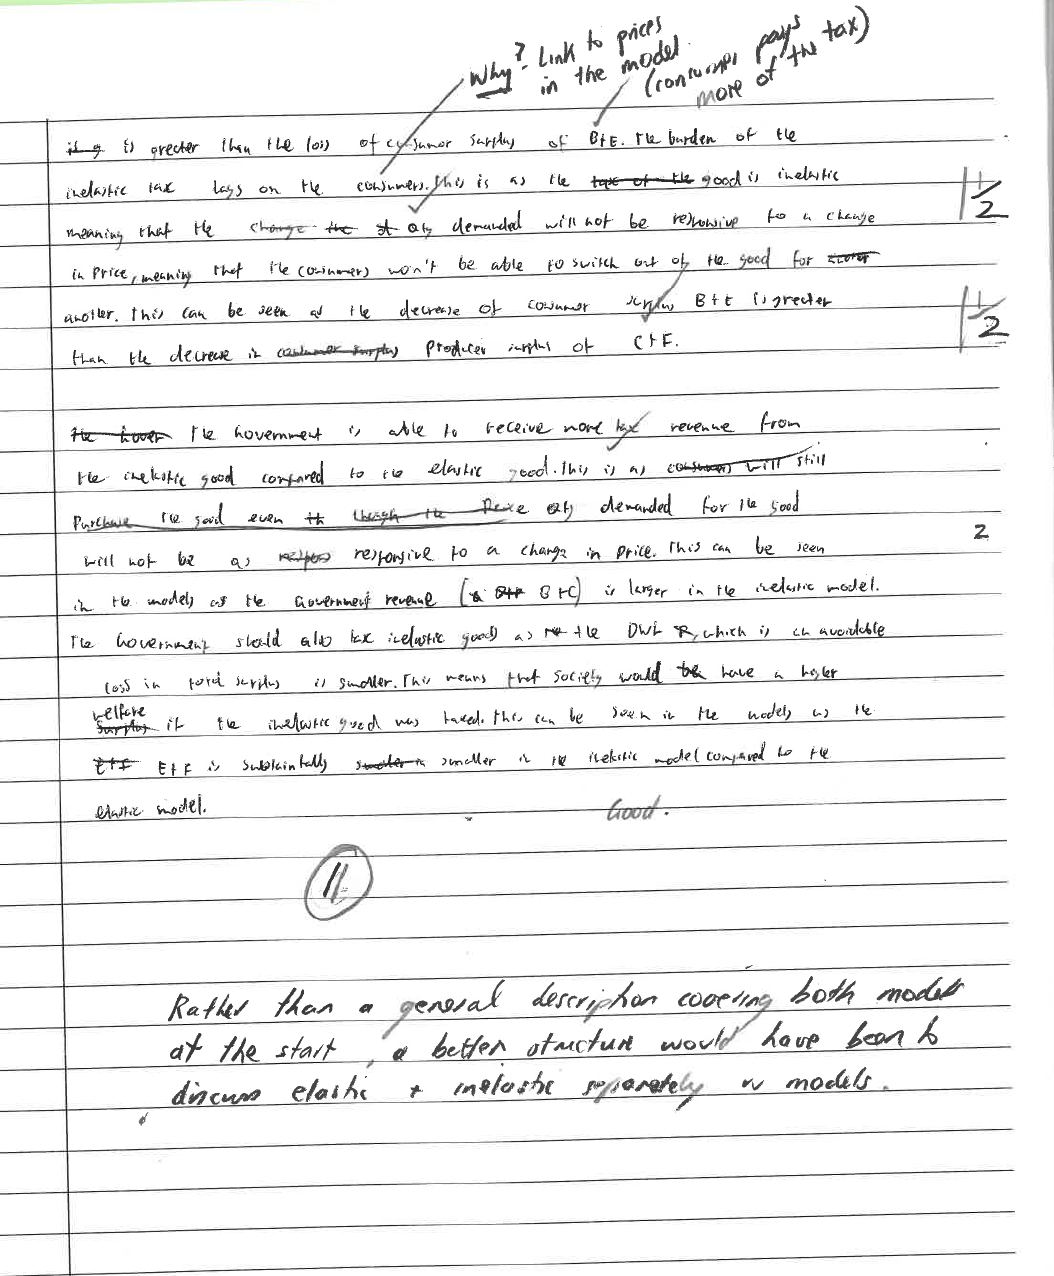 Why? Link to prices
in the model.
(consumer pays
more of the tax)
is greater than the loss of cusumor surplus of B+E. The burden of the
inelastic tax lays on the consumers. This is as the good is inelastic
1 1/2
meaning that the change the qty demanded will not be responsive to a change
in Price, meaning that the consumers won't be able to switch out of the good for
another. This can be seen as the decrease of cosumor surplus B+E is greater
1 1/2
than the decrease in consumer surplus producer surplus of C+F.
The Gover The Government is able to receive more tax revenue from
the inelastic good compared to the elastic good. This is as consumers will still
Purchase the good even th though the Price qty demanded for the good
2
will not be as respons responsive to a change in price. This can be seen
in the models as the Government revenue (B+C) is larger in the inelastic model.
The Government should also tax inelastic goods as the DWL, which is an avoidable
loss in total surplus is smaller. This means that society would be have a higher
welfare
surplus if the inelastic good was taxed. This can be seen in the models as the
E+F E+F is substaintally smaller in smaller in the inelastic model compared to the
elastic model.
Good.
11
Rather than a general description covering both models
at the start, a better structure would have been to
discuss elastic + inelastic separately w models.